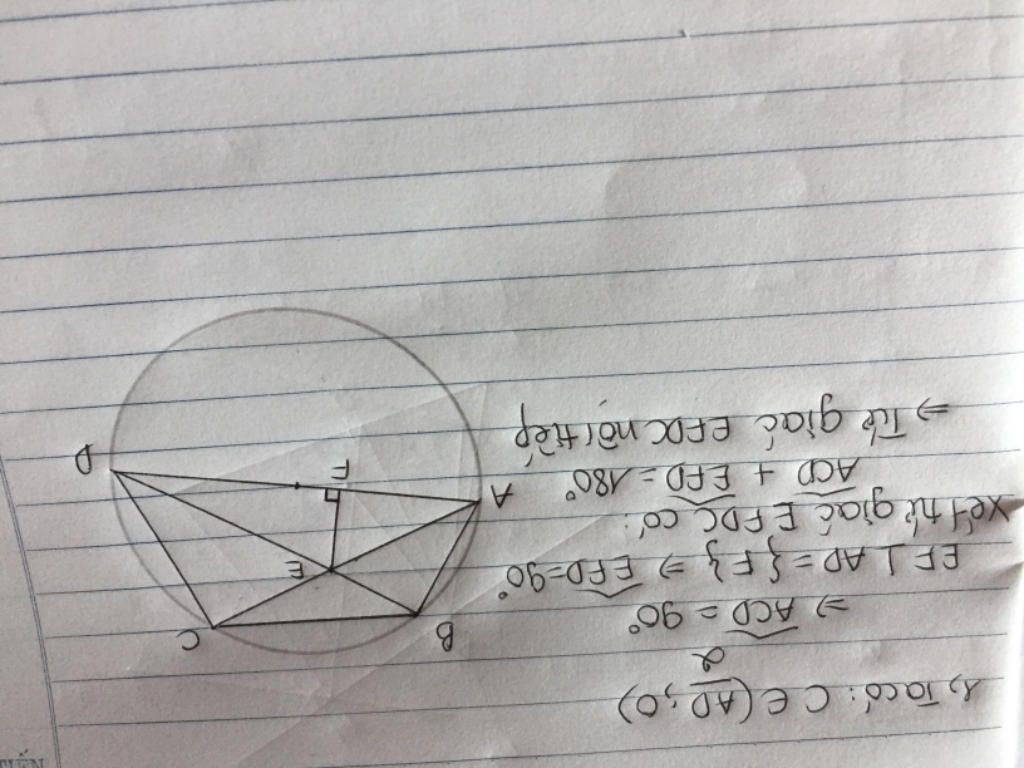 1, Ta có: C ∈ (AD/2; O)
⇒ ACD = 90°
EF ⊥ AD = {F} ⇒ EFD = 90°
Xét tứ giác EFDC có:
ACD + EFD = 180°
⇒ Tứ giác EFDC nội tiếp
B
C
E
A
F
D